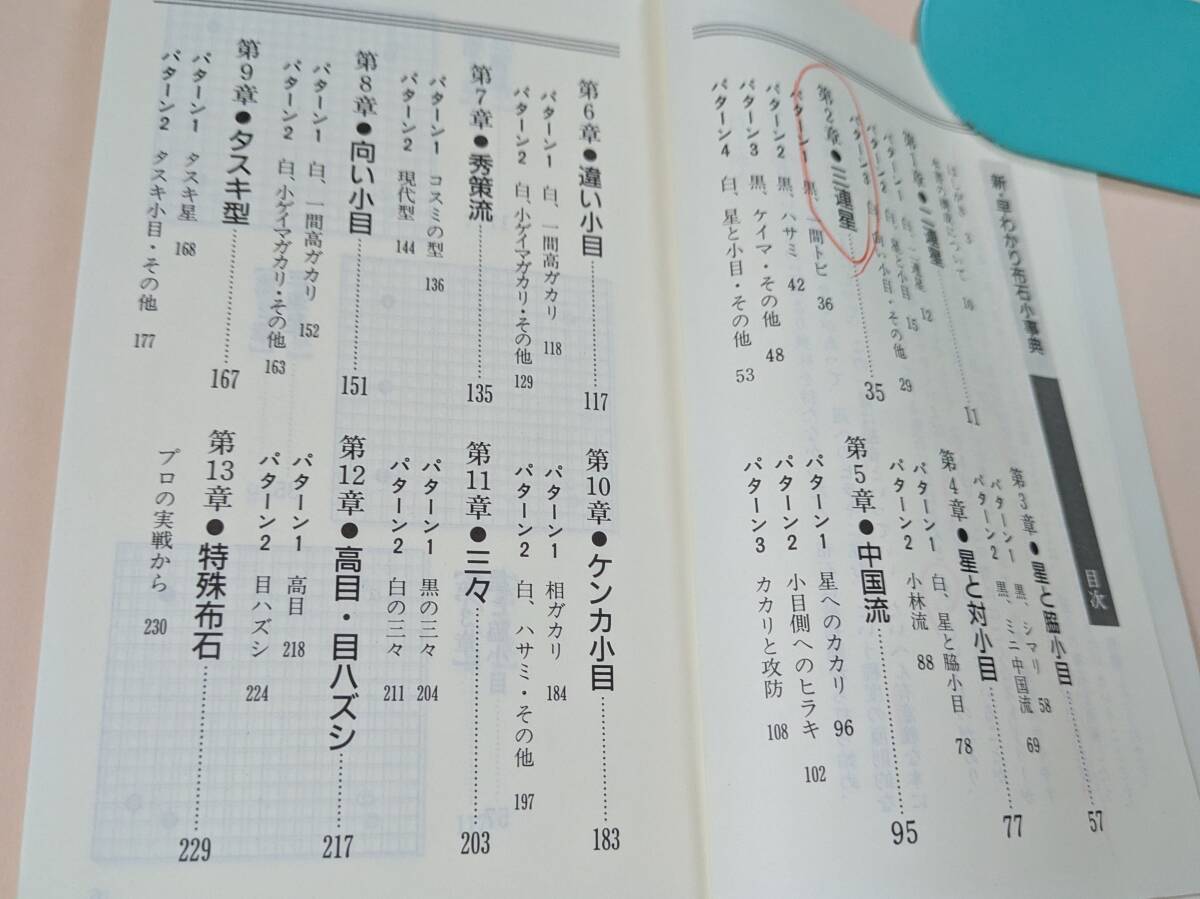 新・早わかり布石小事典
目次
はしがき 3
本書の構成について 10
第1章●二連星……11
パターン1 白、二連星 12
パターン2 白、星と小目 15
パターン3 白、向い小目・その他 29
第2章●三連星……35
パターン1 黒、一間トビ 36
パターン2 黒、ハサミ 42
パターン3 黒、ケイマ・その他 48
パターン4 白、星と小目・その他 53
第3章●星と脇小目……57
パターン1 黒、シマリ 58
パターン2 黒、ミニ中国流 69
第4章●星と対小目……77
パターン1 白、星と脇小目 78
パターン2 小林流 88
第5章●中国流……95
パターン1 星へのカカリ 96
パターン2 小目側へのヒラキ 102
パターン3 カカリと攻防 108
第6章●違い小目……117
パターン1 白、一間高ガカリ 118
パターン2 白、小ゲイマガカリ・その他 129
第7章●秀策流……135
パターン1 コスミの型 136
パターン2 現代型 144
第8章●向い小目……151
パターン1 白、一間高ガカリ 152
パターン2 白、小ゲイマガカリ・その他 163
第9章●タスキ型……167
パターン1 タスキ星 168
パターン2 タスキ小目・その他 177
第10章●ケンカ小目……183
パターン1 相ガカリ 184
パターン2 白、ハサミ・その他 197
第11章●三々……203
パターン1 黒の三々 204
パターン2 白の三々 211
第12章●高目・目ハズシ……217
パターン1 高目 218
パターン2 目ハズシ 224
第13章●特殊布石……229
プロの実戦から 230